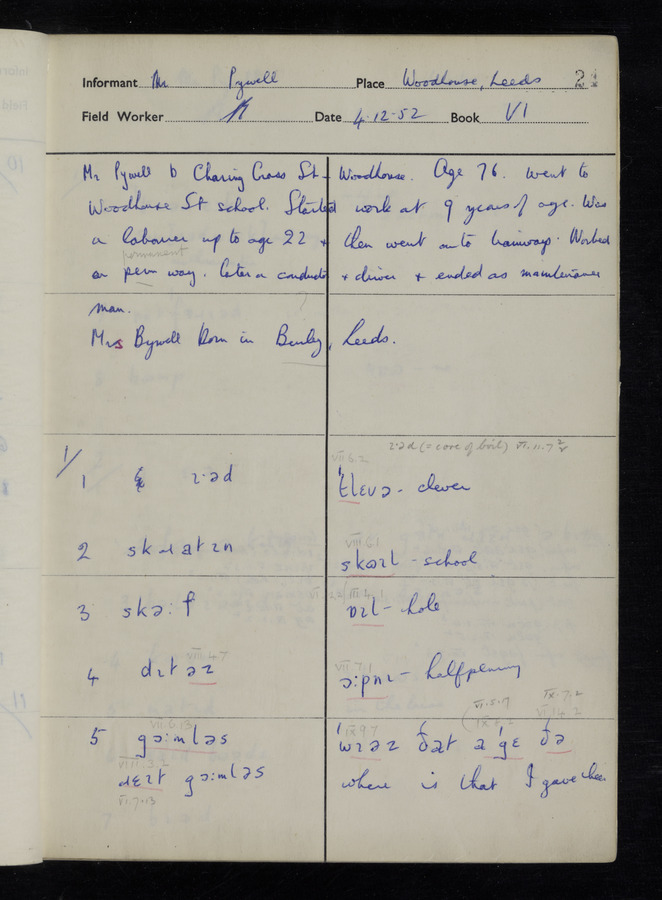 Informant Mr Pywell Place Woodhouse, Leeds 24
Field Worker Date 4.12.52 Book VI
Mr Pywell b Charing Cross St - Woodhouse. Age 76. Went to
Woodhouse St school. Started work at 9 years of age. Was
a labourer up to age 22 & then went onto tramways. Worked
permanent
on perm way. Later a conductor & driver & ended as maintenance
man.
Mrs Bywell born in Leeds.
ɪ·əd (= core of boil) VI.11.7
1/
VII.6.2
1 ɪ·əd 'tlɛvə - clever
VIII.6.1
2 skɹatɪn skʊɪl - school
3 skə:f ɒɪl - hole
VIII.4.7 VII.7.1
4 dɪtəz ə:pnɪ - halfpenny
VI.5.17 IX.7.2
VII.6.13 IX.9.7 VI.14.2
5 gɔ:mləs 'wɪəz ðat a 'gɛ ðə
VIII.3.2
dɛɪt gɔ:mləs where is that I gave thee
VI.7.13